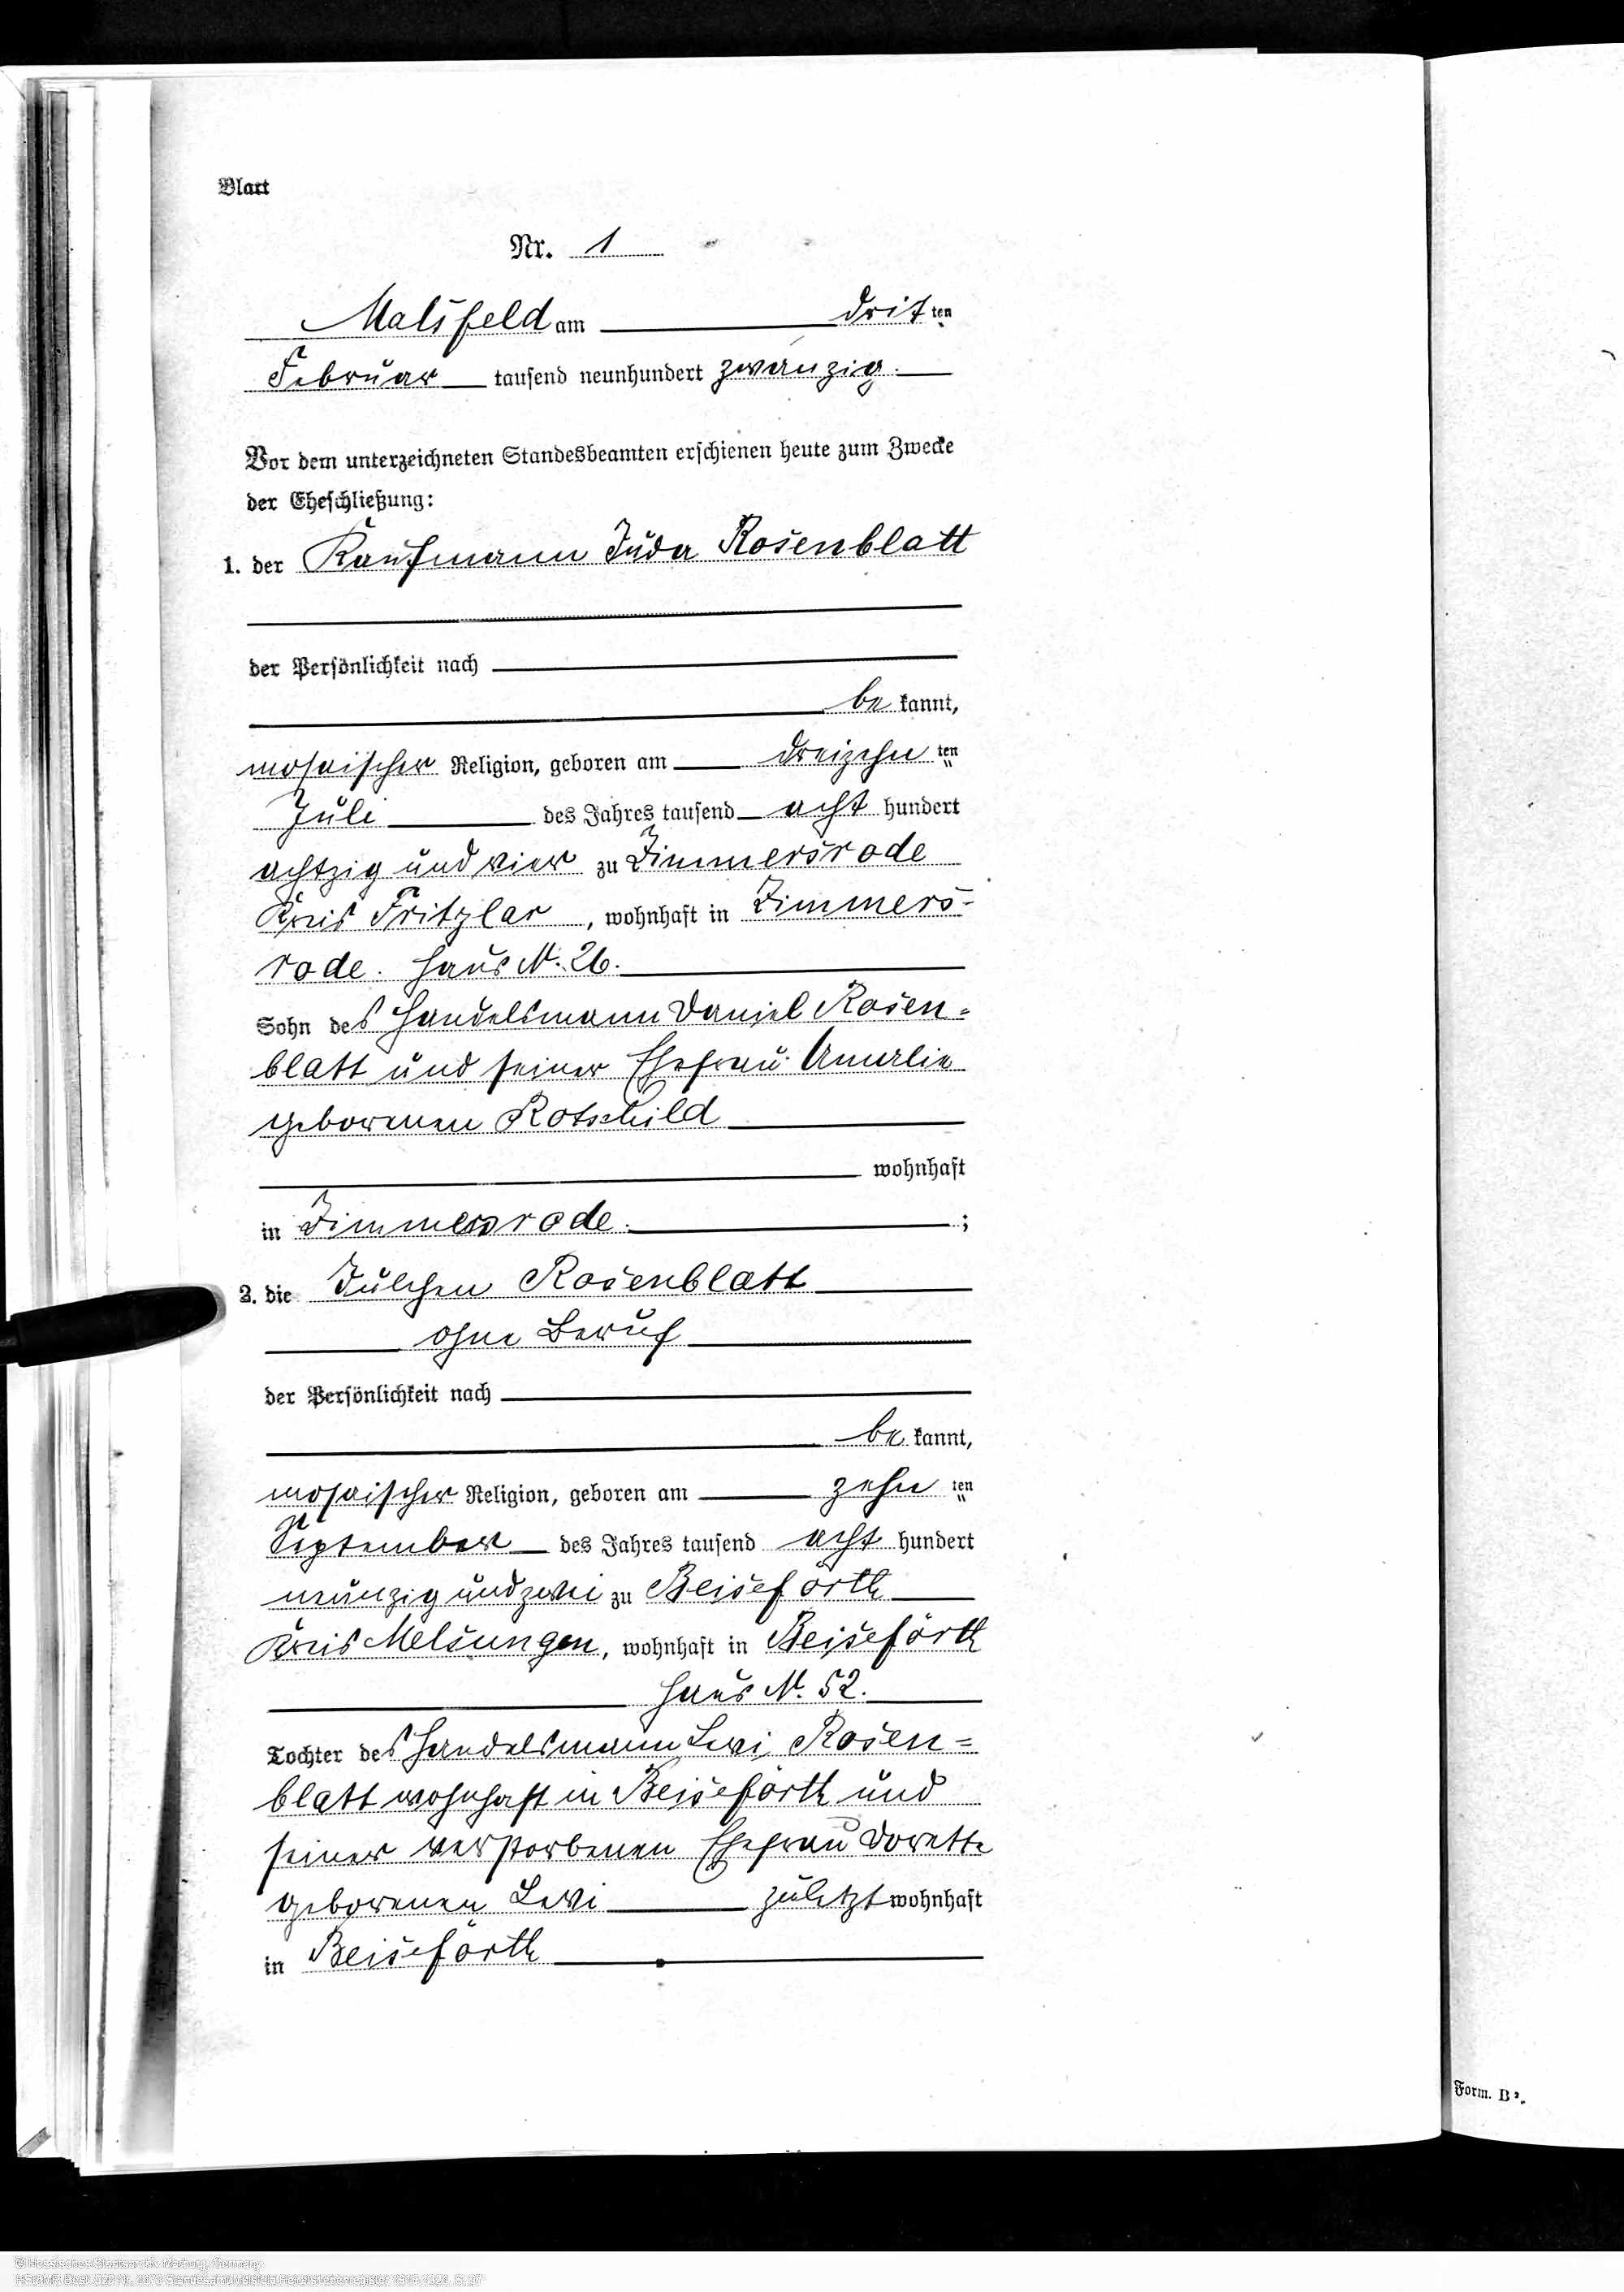 Blatt
Nr. 1
Malsfeld am dritten
Februar tausend neunhundert zwanzig.
Vor dem unterzeichneten Standesbeamten erschienen heute zum Zwecke
der Eheschließung:
1. der Kaufmann Juda Rosenblatt
der Persönlichkeit nach
bekannt,
mosaischer Religion, geboren am dreizehnten
Juli des Jahres tausend acht hundert
achtzig und vier zu Zimmersrode
Kreis Fritzlar, wohnhaft in Zimmers-
rode. Haus N. 26.
Sohn des Handelsmann Daniel Rosen-
blatt und seiner Ehefrau Amalie
geborenen Rotschild
wohnhaft
in Zimmersrode.;
2. die Julchen Rosenblatt
ohne Beruf
der Persönlichkeit nach
bekannt,
mosaischer Religion, geboren am zehnten
September des Jahres tausend acht hundert
neunzig und zwei zu Beiseförth
Kreis Melsungen, wohnhaft in Beiseförth
Haus N. 52.
Tochter des Handelsmann Levi Rosen-
blatt wohnhaft in Beiseförth und
seiner verstorbenen Ehefrau Dorette
geborenen Levi zuletzt wohnhaft
in Beiseförth
Form. B².
© Hessisches Staatsarchiv Marburg, Germany